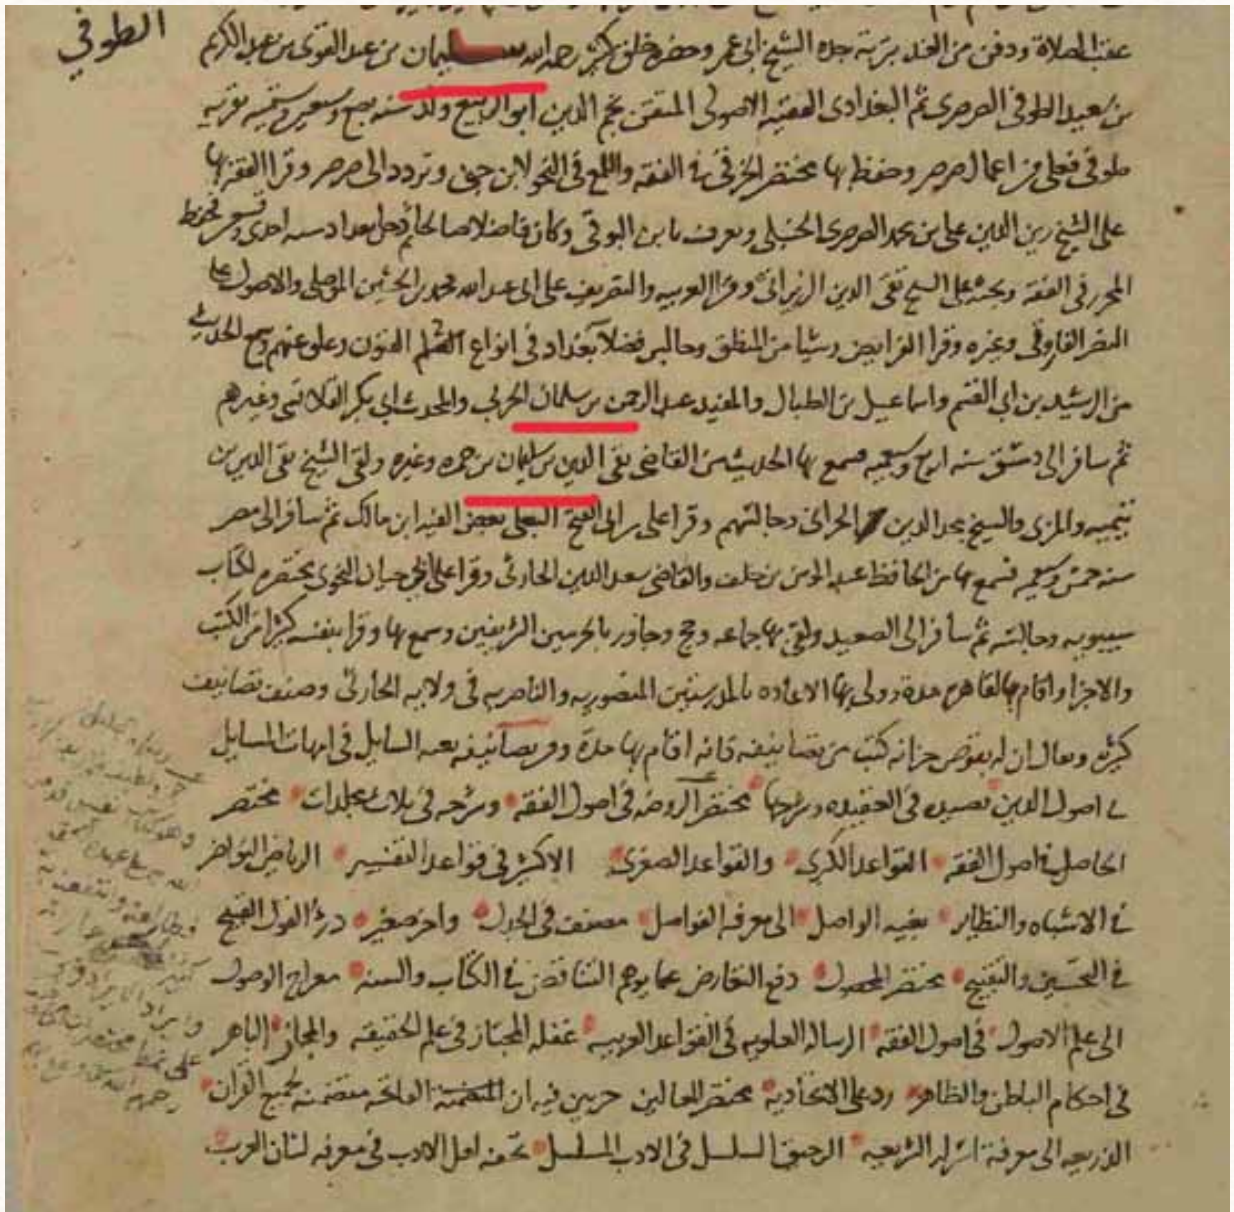 الطوفي
عقب الصلاة ودفن من الغد بتربة جده الشيخ ابى عمر وحضره خلق كثير رحمه الله سليمان بن عبد القوى بن عبد الكريم
بن سعيد الطوفى الصرصرى ثم البغدادى الفقيه الاصولى المتفنن نجم الدين ابو الربيع ولد سنه بضع وسبعين وستميه بقريه
طوفى من اعمال صرصر وحفظ بها مختصر الخرقى فى الفقه واللمع فى النحو لابن جنى وتردد الى صرصر وقرا الفقه بها
على الشيخ زين الدين على بن محمد الصرصرى الحنبلى ويعرف بابن البوقى وكان فاضلا صالحا ثم دخل بغداد سنه احدى وتسعين فحفظ
المحرر فى الفقه وبحثه على الشيخ تقى الدين الزيرانى وقرا العربيه والتصريف على ابى عبد الله محمد بن الحسين الموصلى والاصول على
النصر الفاروقى وغيره وقرا الفرايض وشيا من المنطق وجالس فضلا بغداد فى انواع الفنون وعلق عنهم وسمع الحديث
من الرشيد بن ابى القسم واسماعيل بن الطبال والمفيد عبد الرحمن بن سلمان الحربى والمحدث ابى بكر القلانسى وغيرهم
ثم سافر الى دمشق سنه اربع وسبعميه فسمع بها الحديث من القاضى تقى الدين بن سليمان بن حمزه وغيره ولقى الشيخ تقى الدين بن
تيميه والمزى والشيخ مجد الدين الحرانى وجالسهم وقرا على بن ابى الفتح البعلى بعض الفيه ابن مالك ثم سافر الى مصر
سنه خمس وسبعميه فسمع بها من الحافظ عبد المومن بن خلف والقاضى سعد الدين الحارثى وقرا على ابى حيان النحوى مختصره لكتاب
سيبويه وجالسه ثم سافر الى الصعيد ولقى بها جماعه وحج وجاور بالحرمين الشريفين وسمع بها وقرا بنفسه كثيرا من الكتب
والاجزا واقام بالقاهره مدة وولى بها الاعاده بالمدرستين المنصوريه والناصريه فى ولايه الحارثى وصنف تصانيف
كثيره ويقال ان له بقوص خزانه كتب من تصانيفه فانه اقام بها مدة ومن تصانيفه بغيه السايل فى امهات المسايل
فى اصول الدين قصيده فى العقيده وشرحها مختصر الروضه فى اصول الفقه وشرحه فى ثلاث مجلدات مختصر
الحاصل فى اصول الفقه القواعد الكبرى والقواعد الصغرى الاكثير فى قواعد التفسير الرياض النواضر
فى الاشباه والنظاير بغيه الواصل الى معرفه الفواصل مصنف فى الجدل واخر صغير درء القول القبيح
فى التحسين والتقبيح مختصر المحصول دفع التعارض عما يوهم التناقض فى الكتاب والسنه معراج الوصول
الى علم الاصول فى اصول الفقه الرساله العلويه فى القواعد العربيه غفله المجتاز فى علم الحقيقه والمجاز الباهر
فى احكام الباطن والظاهر رد على الاتحاديه مختصر المعالين جزيين فيه ان الفاتحه متضمنه لجميع القران
الذريعه الى معرفة اسرار الشريعه الرحيق السلسل فى الادب المسلسل تحفه اهل الادب فى معرفه لسان العرب